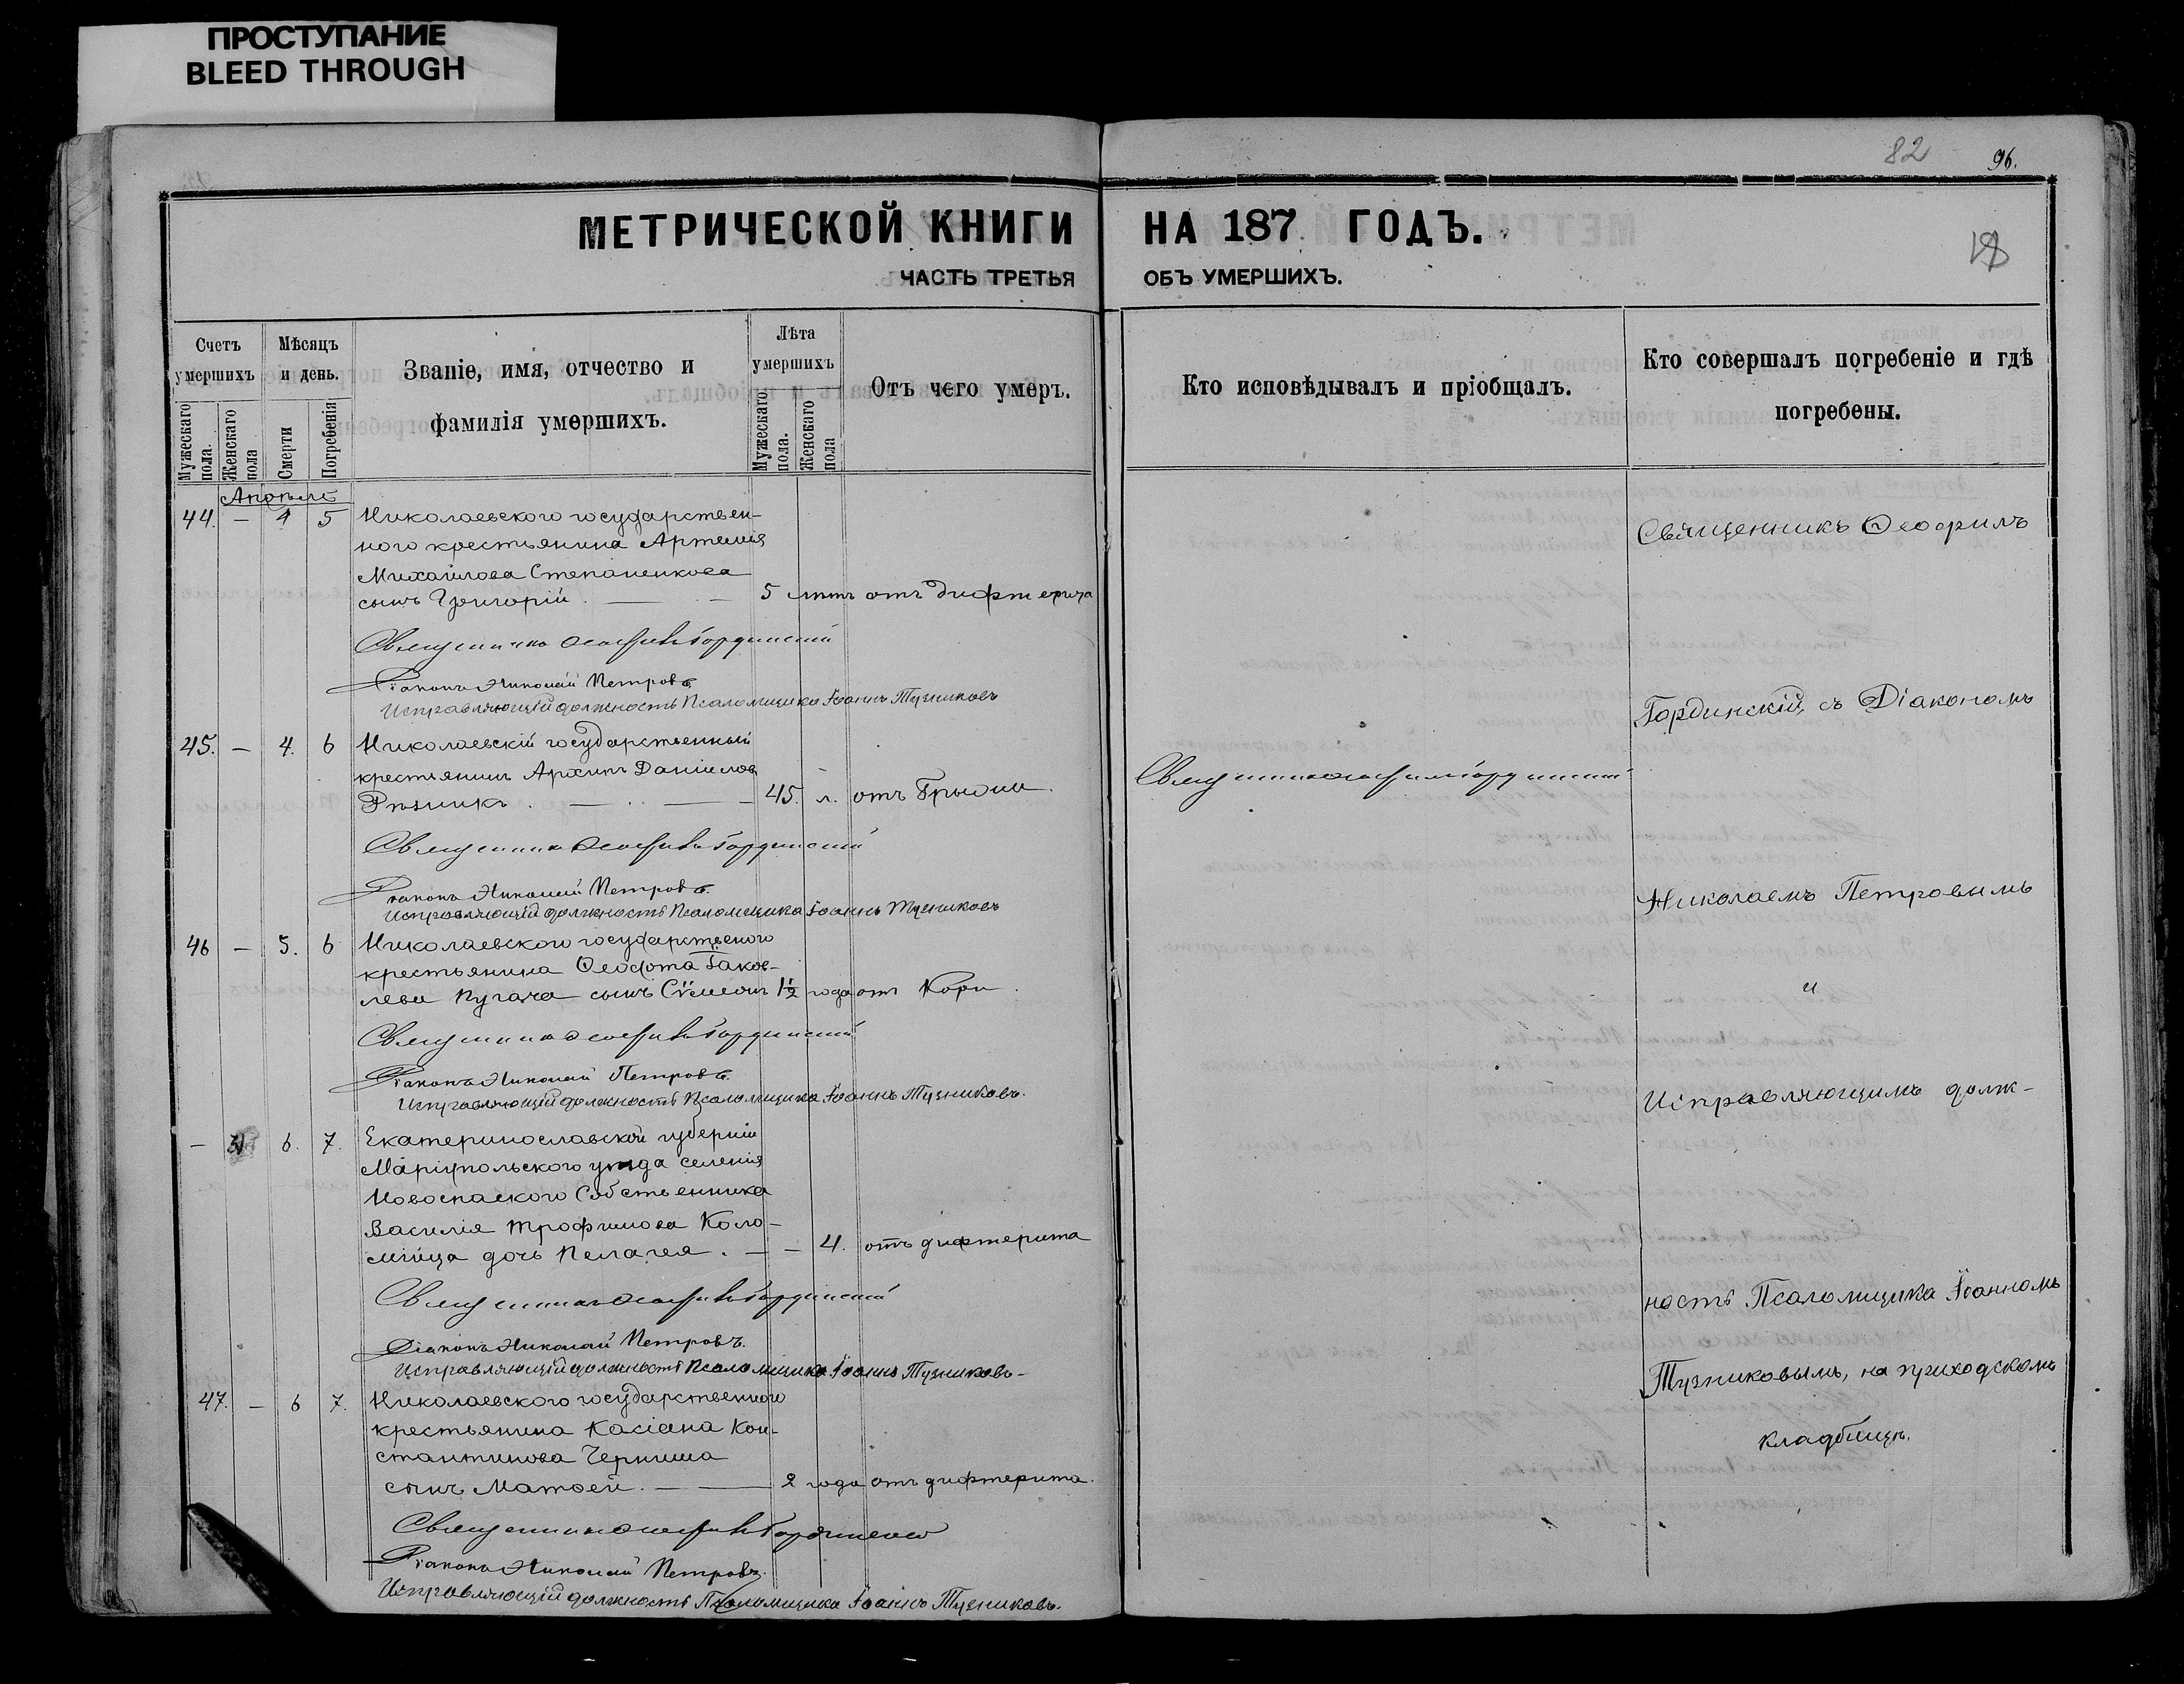 ПРОСТУПАНИЕ
BLEED THROUGH
82
96.
МЕТРИЧЕСКОЙ КНИГИ НА 187 ГОДЪ.
ЧАСТЬ ТРЕТЬЯ ОБЪ УМЕРШИХЪ.
Счетъ умершихъ
Мужескаго пола.
Женскаго пола
Мѣсяцъ и день.
Смерти
Погребенія
Званіе, имя, отчество и
фамилія умершихъ.
Лѣта умершихъ
Мужескаго пола.
Женскаго пола
Отъ чего умеръ.
Кто исповѣдывалъ и пріобщалъ.
Кто совершалъ погребеніе и гдѣ
погребены.
44. — 4 5 Николаевского государствен-
ного крестьянина Артемія
Михайлова Степаненкова
сынъ Григорій. — — 5 лѣтъ отъ дифтерита
Священникъ Ѳеофилъ Гординскій
Діаконъ Николай Петровъ
Исправляющій должность Псаломщика Іоаннъ Тузниковъ
45. — 4. 6 Николаевскій государственный
крестьянинъ Архипъ Даніиловъ
Рѣзникъ. — — 45. л. отъ Грыжи.
Священникъ Ѳеофилъ Гординскій
Діаконъ Николай Петровъ.
Исправляющій должность Псаломщика Іоаннъ Тузниковъ
46 — 5. 6 Николаевского государственого
крестьянина Ѳеодота Іаков-
лева Пугача сынъ Сѵмеонъ 1½ года отъ Кори.
Священникъ Ѳеофилъ Гординскій
Діаконъ Николай Петровъ.
Исправляющій должность Псаломщика Іоаннъ Тузниковъ.
— 6. 7. Екатеринославской губерніи
Маріупольского уѣзда селенія
Новоспаского Собственника
Василія Трофимова Коло-
мійца дочь Пелагея. — — 4. отъ дифтерита
Священникъ Ѳеофилъ Гординскій
Діаконъ Николай Петровъ.
Исправляющій должность Псаломщика Іоаннъ Тузниковъ-
47. — 6 7. Николаевского государственного
крестьянина Касіана Кон-
стантинова Черныша
сынъ Матѳей. — — 2 года отъ дифтерита.
Священникъ Ѳеофилъ Гординскій
Діаконъ Николай Петровъ.
Исправляющій должность Псаломщика Іоаннъ Тузниковъ.
Священникъ Ѳеофилъ Гординскій
Священникъ Ѳеофилъ
Гординскій, съ Діакономъ
Николаемъ Петровымъ
и
Исправляющимъ долж-
ность Псаломщика Іоанномъ
Тузниковымъ, на приходскомъ
кладбищѣ.